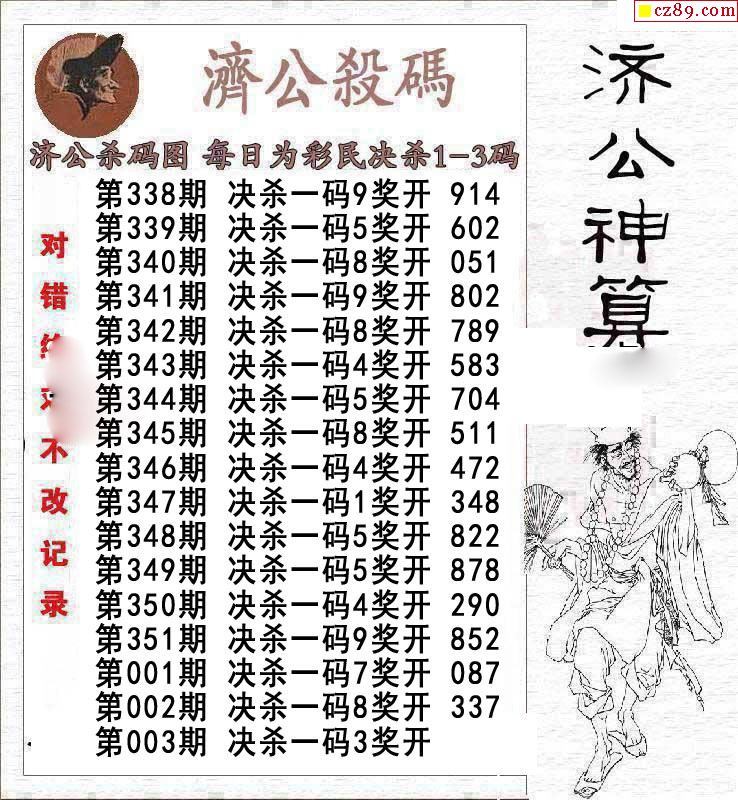 cz89.com
濟公殺碼
济公杀码图 每日为彩民决杀1-3码
第338期 决杀一码9奖开 914
第339期 决杀一码5奖开 602
第340期 决杀一码8奖开 051
第341期 决杀一码9奖开 802
第342期 决杀一码8奖开 789
第343期 决杀一码4奖开 583
第344期 决杀一码5奖开 704
第345期 决杀一码8奖开 511
第346期 决杀一码4奖开 472
第347期 决杀一码1奖开 348
第348期 决杀一码5奖开 822
第349期 决杀一码5奖开 878
第350期 决杀一码4奖开 290
第351期 决杀一码9奖开 852
第001期 决杀一码7奖开 087
第002期 决杀一码8奖开 337
第003期 决杀一码3奖开
对错不改记录
济公神算